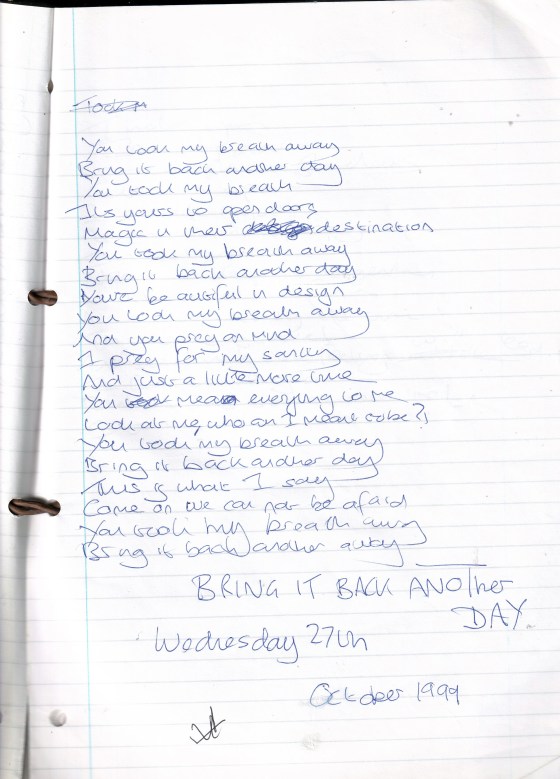 You took my breath away
Bring it back another day
You took my breath
Its yours to open doors
Magic in their destination
You took my breath away
Bring it back another day
Youre beautiful in design
You took my breath away
And you prey on mind
I prey for my sanity
And just a little more time
You mean everything to me
Look at me, who am I meant to be?
You took my breath away
Bring it back another day
This is what I say
Come on we can not be afraid
You took my breath away
Bring it back another away
BRING IT BACK ANOther
DAY.
Wednesday 27th
October 1999